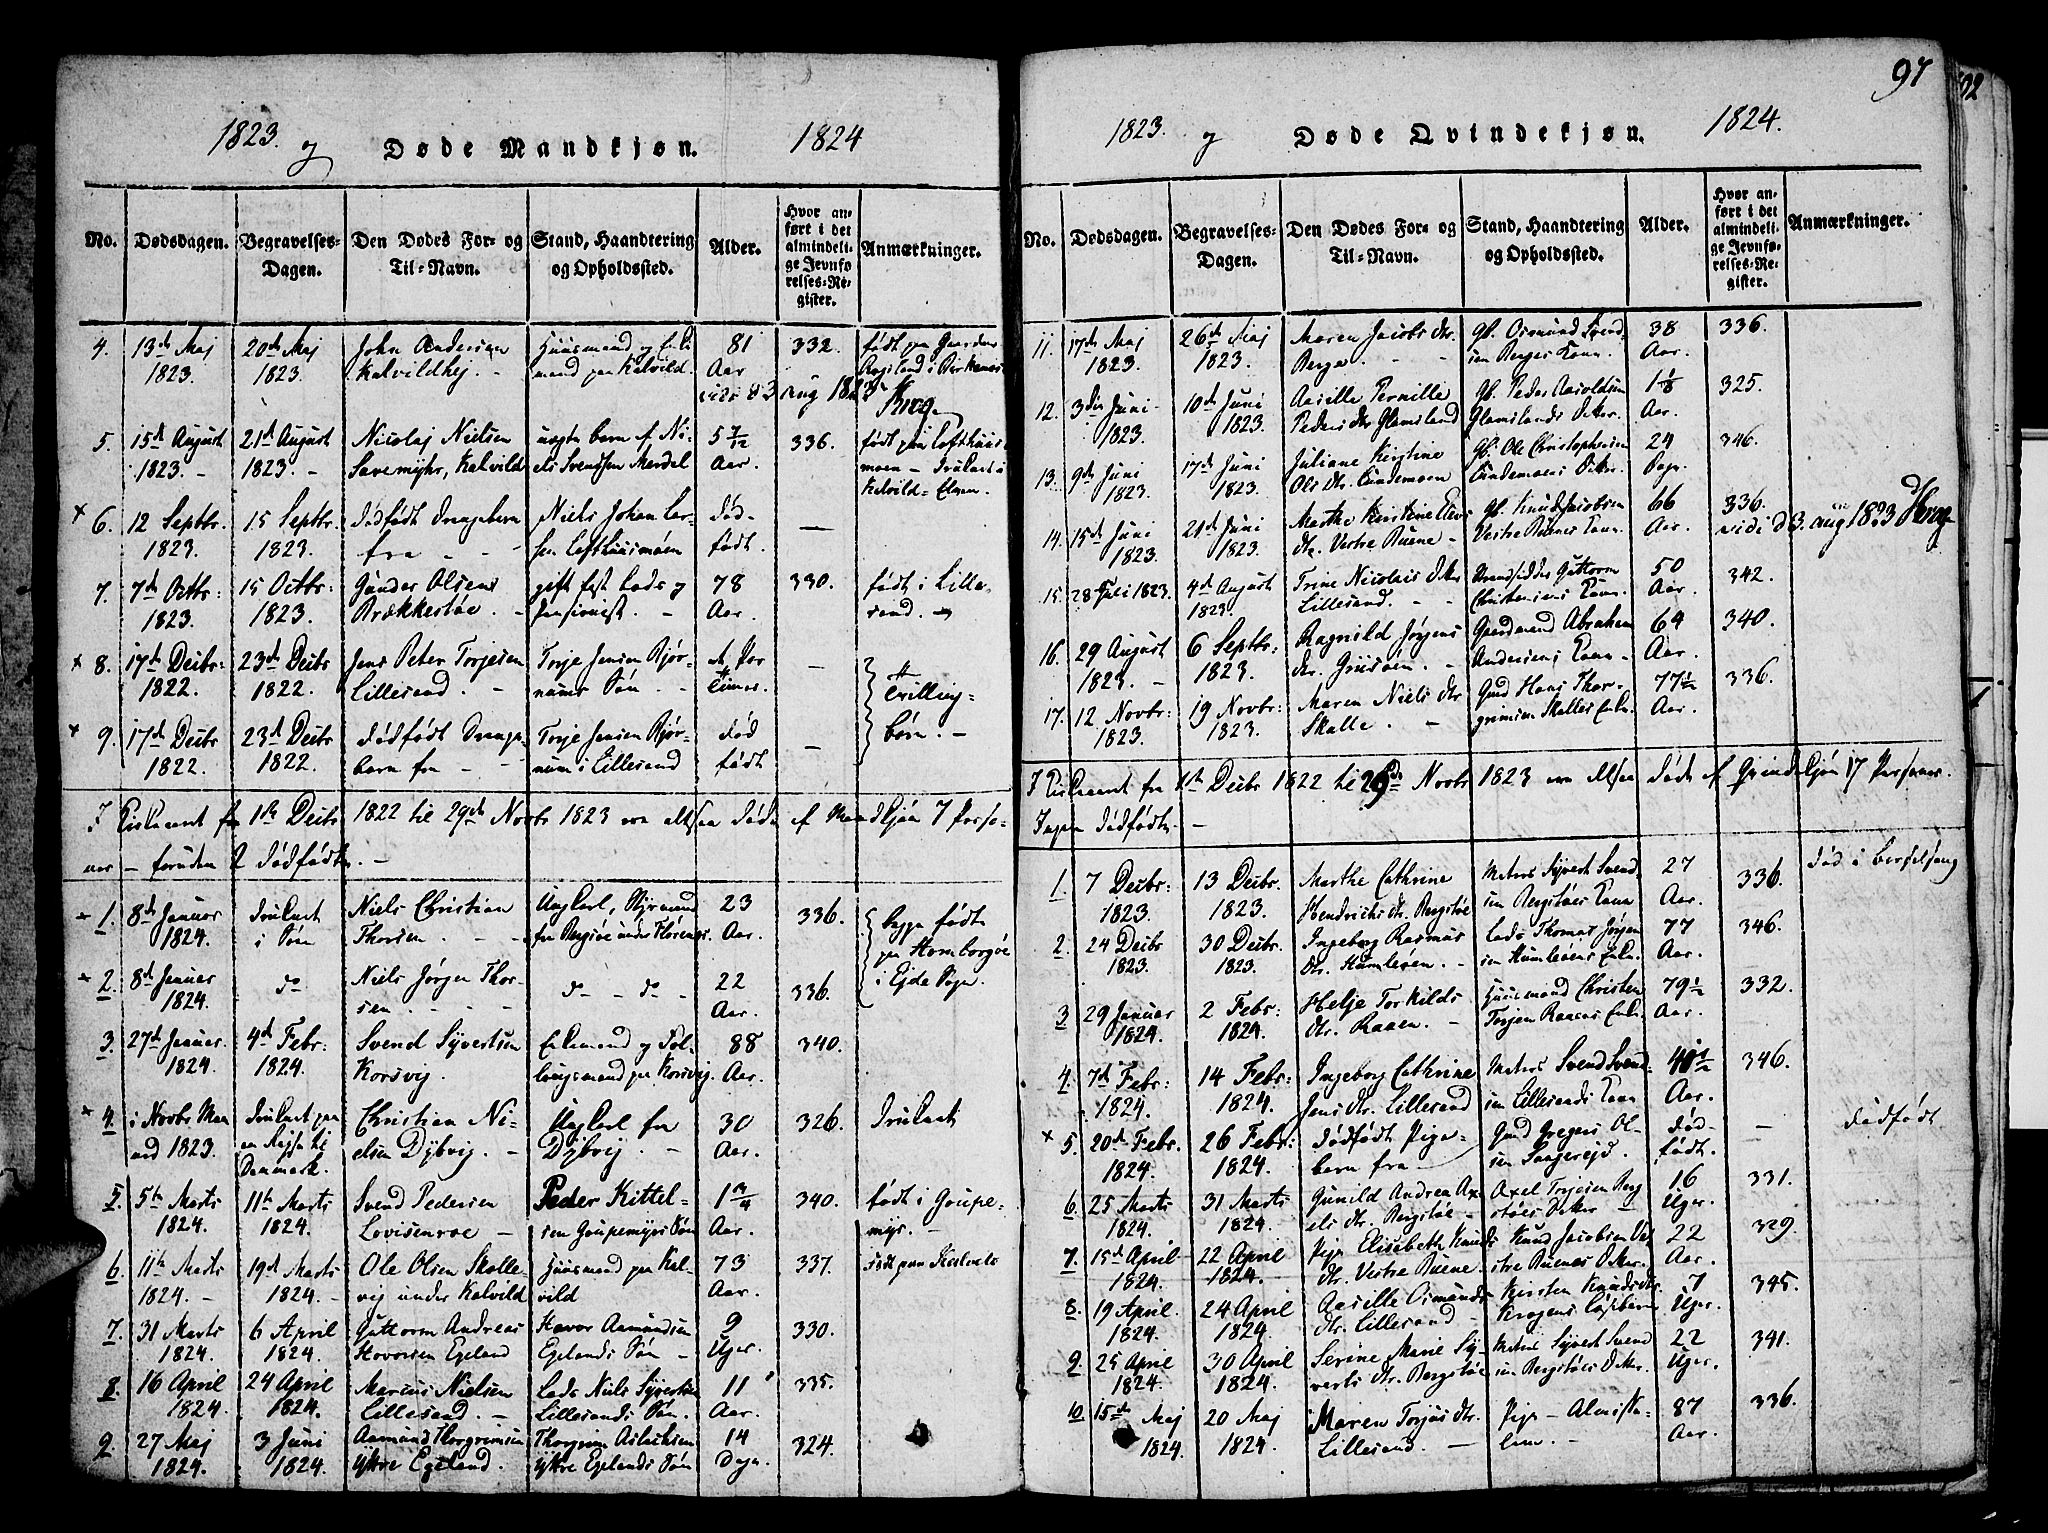 97
92
1823. og Døde Mandkjøn. 1824
No. Dødsdagen. Begravelses-Dagen. Den Dødes For- og Til-Navn. Stand, Haandtering og Opholdssted. Alder. Hvor anført i det almindelige Jevnførelses-Register. Anmærkninger.
4. 13de Maj 1823. 20de Maj 1823. John Andersen Kalvildhej. Huusmand og mand paa Kalvild. 81 Aar 332. født paa Gaarden i Birkenes
vidi d 3 Aug 1823
5. 15d August 1823. - 21d August 1823. - Nicolaj Nielsen Savemyhr, Kalvild uægte barn af Niels Svendsen Mandal 5 7/12 Aar. 336. født paa Lofthuusmoen - Kalvild-Elven.
× 6. 12 Septbr. 1823. 15 Septbr. 1823. Dødfødt Drengebarn fra - - Niels Johan Larsen Lofthuusmoen Død-født. —
7. 7de Octbr. 1823. 15 Octbr: 1823. Gunder Olsen Brækkestøe. - gift Lods og Pensionist. - 78 Aar. 330. født i Lillesand. -
× 8. 17de Decbr: 1822. 23de Decbr 1822. Jens Peter Torjesen Lillesand. - Torje Jensen Kjørnums Søn. - et Par Timer. — Tvilling-børn. -
× 9. 17de Decbr 1822. 23d Decbr 1822. Dødfødt Drengebarn fra - - Torje Jensen Kjørnum i Lillesand Død født —
I Kirkeaaret fra 1ste Decbr 1822 til 29de Novbr 1823 ere altsaa døde af Mandkjøn 7 Personer - foruden 2 Dødfødte. -
- 1. 8de Januar 1824. Druknet i Søen Niels Christian Thorsen. - - Ungkarl, Styrmand fra Bergsøe under 23 Aar. 336. begge født paa Homborgøe i Ejde Sogn.
- 2. 8de Januar 1824. do Niels Jørgen Thorsen. - - - do - - do - 22 Aar. 336.
3. 27de Januar 1824. 4de Febr. 1824. Svend Syvertsen Korsvig. Enkemand og paa Korsvig. 88 Aar. 340.
× 4. i Novbr Maaned 1823. Druknet paa en Rejse til Danmark. Christian Nielsen Dybvig. - Ungkarl fra Dybvig. - 30 Aar. 326. Druknet
5. 5te Marts 1824. 11te Marts 1824. Svend Pedersen Lovisenroe - Peder Kittelsen Goupemyrs Søn 1 3/4 Aar. 340. født i Goupemyr. -
6. 11te Marts 1824. - 19de Marts 1824. - Ole Olsen Skallevig under Kalvild Huusmand paa Kalvild 73 Aar. 337. født paa
7. 31 Marts 1824. 6 April 1824. Guttorm Andreas Havorsen Egeland Havor Aamundsen Egelands Søn - 9 Uger. 330.
8. 16 April 1824. 24 April 1824. Marcus Nielsen Lillesand. - Lods Niels Syvertsen Lillesands Søn. 11 Aar. 335.
9. 27 Maj 1824. 3 Juni 1824. Aamund Thorgrimsen Ytre Egeland. Thorgrim Aslachsen Ytre Egelands Søn 14 Dage. 324.
1823. og Døde Qvindekjøn. 1824.
No. Dødsdagen. Begravelses-Dagen. Den Dødes For- og Til-Navn. Stand, Haandtering og Opholdssted. Alder. Hvor anført i det almindelige Jevnførelses-Register. Anmærkninger.
11. 17de Maj 1823. 26de Maj 1823. Maren Jacobs dtr. Berge - - Gb. Osmund Svendsen Berges Kone. 38 Aar. 336.
12. 3die Juni 1823. 10de Juni 1823. Aasille Pernille Peders dtr Glamsland Gb. Peder Aasoldsen Glamslands Datter. 1 1/8 Aar. 325.
13. 9de Juni 1823. 17de Juni 1823. Juliane Kirstine Ols dtr. Lundemoen Gb. Ole Christophersen Lundemoens Datter. 24 Dage. 346.
14. 15de Juni 1823. 21de Juni 1823. Marthe Kirstine dtr. Vestre Ruene - Gb. Knud Jacobsen Vestre Ruenes Kone. 66 Aar. 336. vidi d 3. Aug 1823
15. 28 Juli 1823. 4de August 1823. Trine Nicolais Datter Lillesand. - - Strandsidder Guttorm Christensens Kone. 50 Aar. 342.
16. 29 August 1823. - 6 Septbr: 1823. Ragnild Jørgens dtr. - Gaardmand Abraham Andersens Kone - 69 Aar. 340.
17. 12 Novbr: 1823. 19 Novbr: 1823. Maren Niels dtr Skalle. - Gmd Hans Thorgrimsen Skalles Enke. 77 1/2 Aar. 336.
I Kirkeaaret fra 1ste Decbr 1822 til 29de Novbr 1823 ere altsaa døde af Qvindekjøn 17 Personer. Ingen Dødfødte. -
1. 7 Decbr: 1823. 13 Decbr. 1823. Marthe Cathrine Hendrichs dtr. Bergstøe Matros Syvert Svendsen Bergstøes Kone 27 Aar. 336. død i Barselseng
2. 24 Decbr 1823. 30 Decbr: 1823. Ingeborg Rasmus dtr. Humlesøen. - Lods Thomas Jørgensen Humlesøens Enke. 77 Aar. 346.
3. 29 Januar 1824. 2 Febr: 1824. Helje Torkilds dtr. Raaen. - Huusmand Christen Torjsen Raaens Enke 79 1/2 Aar. 332.
4. 7de Febr: 1824. 14 Febr: 1824. Ingeborg Cathrine Jens dtr. Lillesand Matros Svend Svendsen Lillesands Kone Aar. 346.
× 5. 20de Febr. 1824. 26 Febr: 1824. Dødfødt Pigebarn fra - Gmd Gregers Olsen Saagerejd. Død-født. — Dødfødt
6. 25 Marts 1824. 31 Marts 1824. Gunild Andrea Axels dtr. Bergstøe - Axel Torjesen Bergstøes Datter - 16 Uger. 331.
7. 15de April 1824. 22 April 1824. Pige Elisabeth Knuds dtr. Vestre Ruene. Knud Jacobsen Vestre Ruenes Datter. 22 Aar. 329.
8. 19 April. 1824. 24 April 1824. Aasille Osmunds dtr. Lillesand - Kirsten Knudsdtr. Krogens 7 Uger. 345.
9. 25 April 1824. 30 April 1824. Serine Marie Syverts dtr. Bergstøe Matros Syvert Svendsen Bergstøes Datter. 22 Uger. 341.
10 15de Maj 1824. 20 Maj 1824. Maren Torjus dtr. Lillesand. - Pige - Almisselem. - 87 Aar. 336.